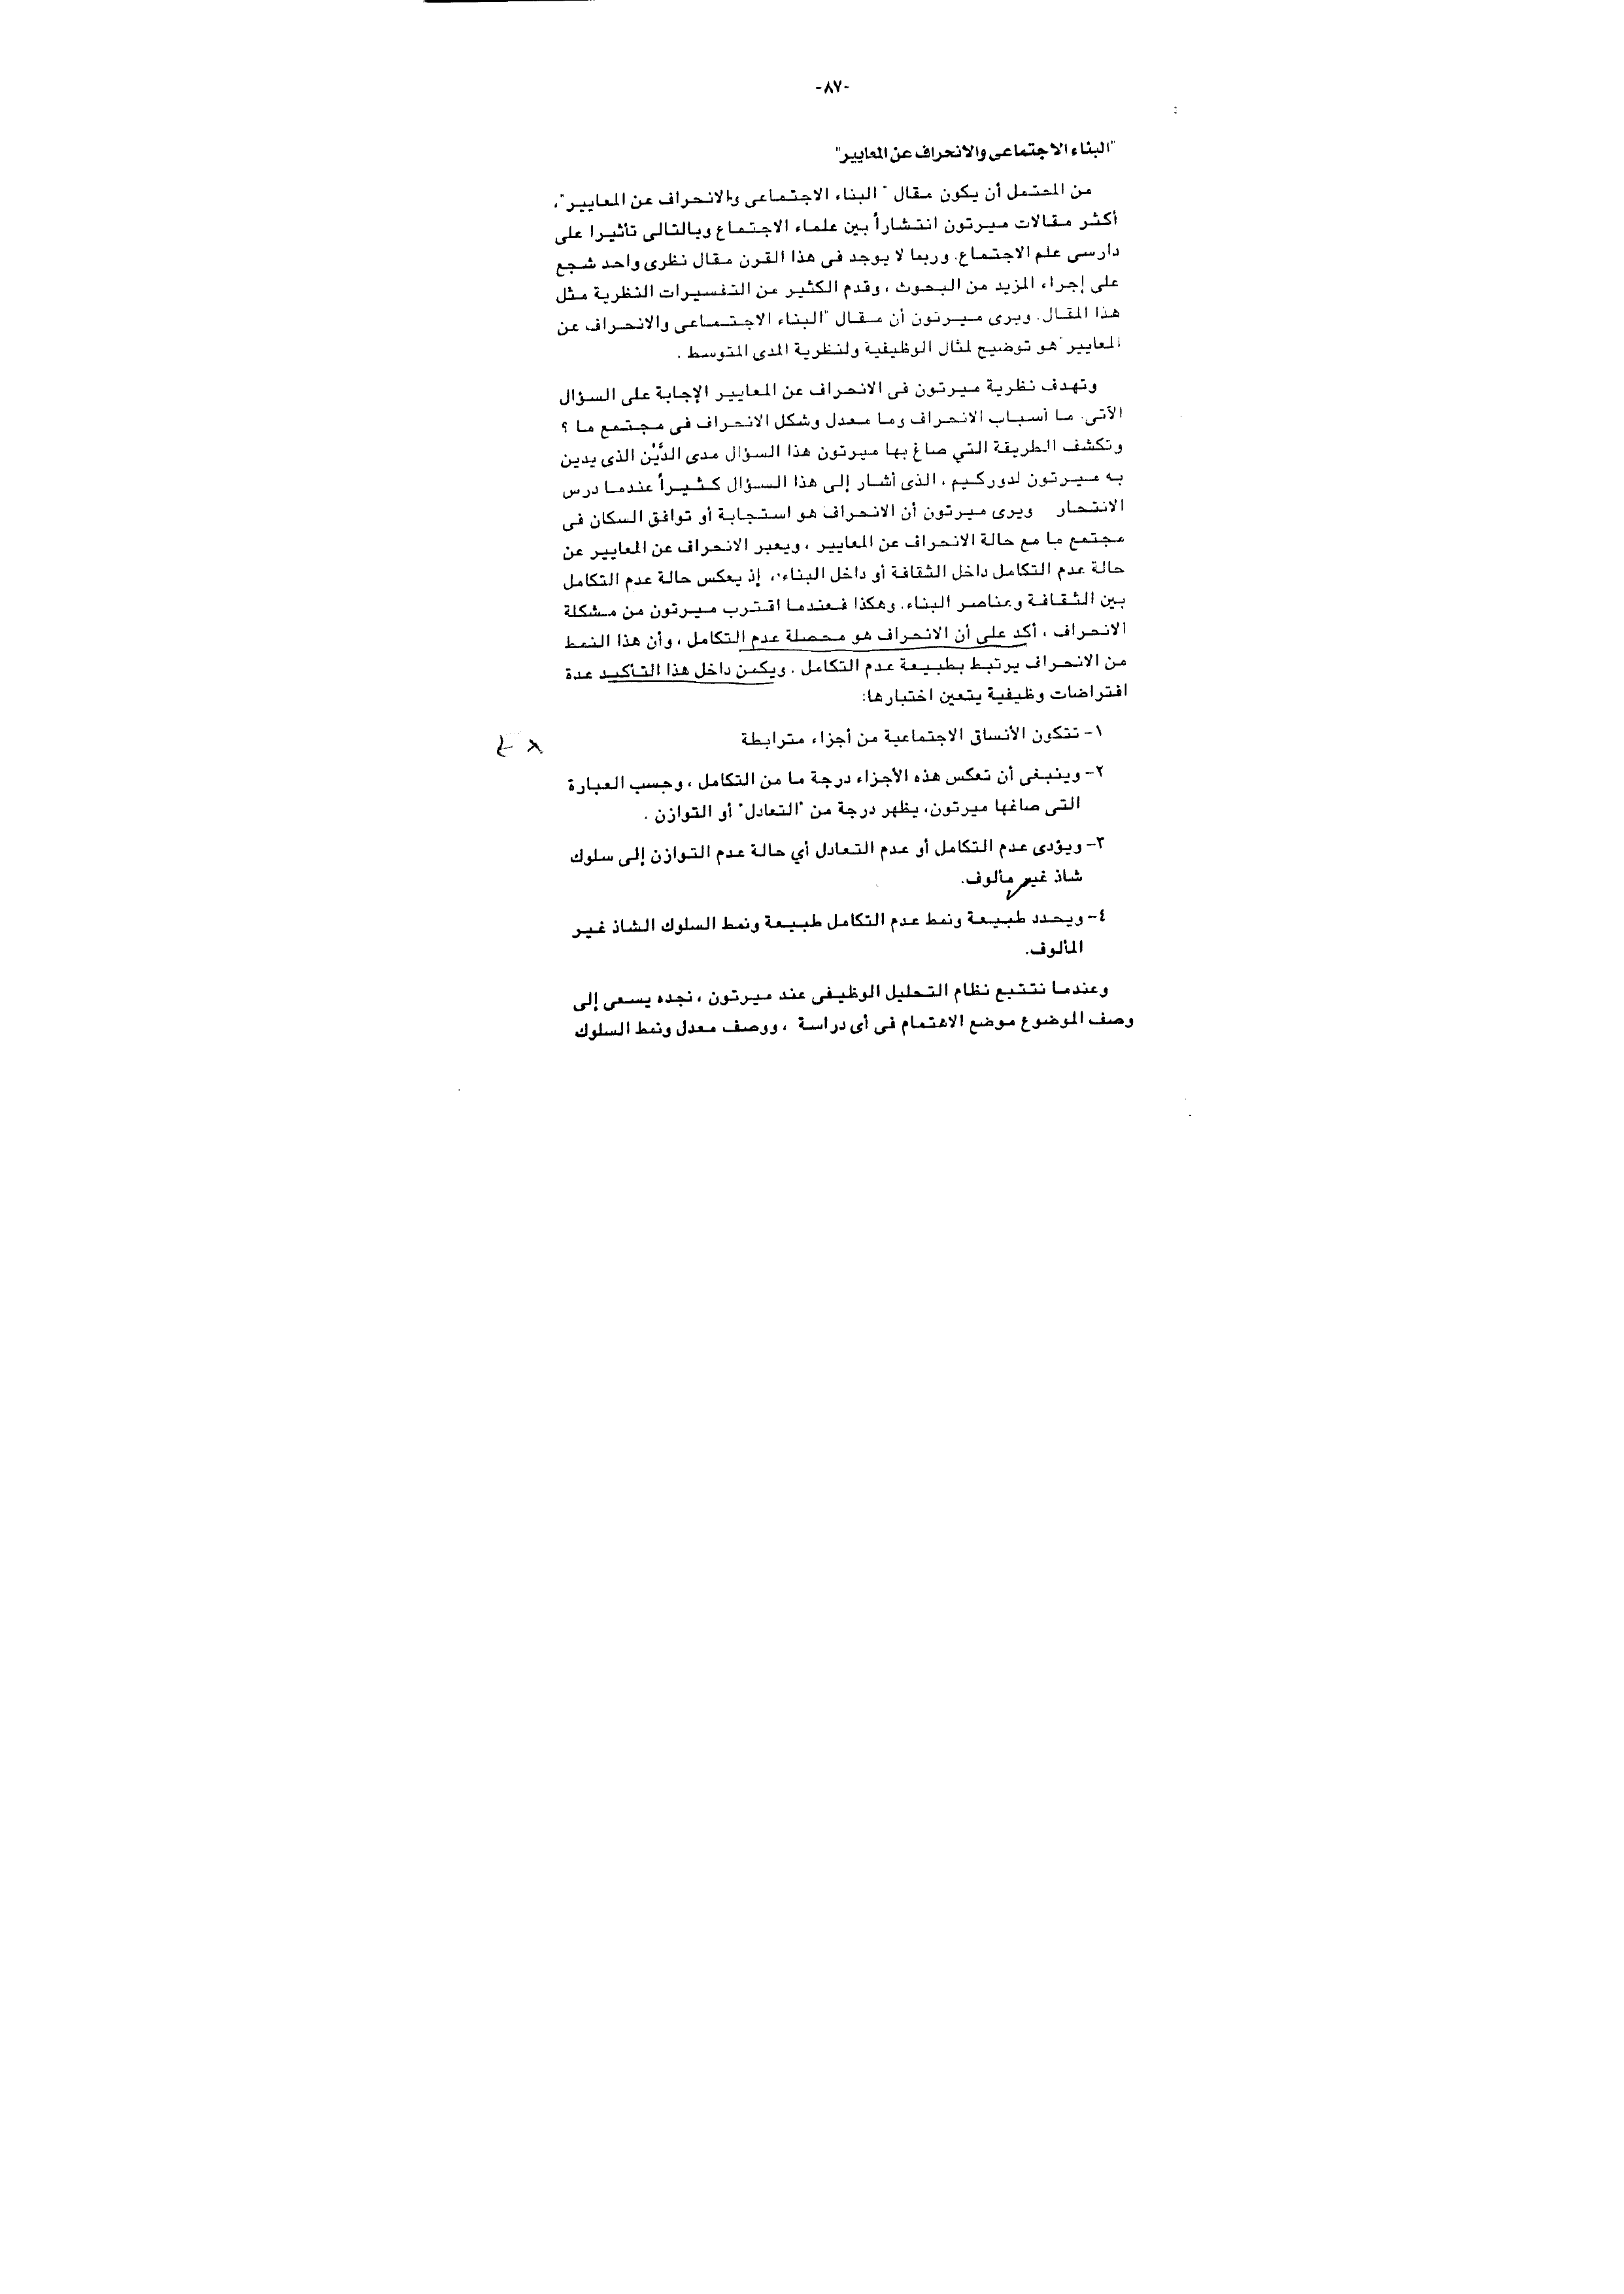 -٨٧-
"البناء الاجتماعى والانحراف عن المعايير"
من المحتمل أن يكون مقال "البناء الاجتماعى والانحراف عن المعايير"،
أكثر مقالات ميرتون انتشاراً بين علماء الاجتماع وبالتالى تأثيرا على
دارسى علم الاجتماع. وربما لا يوجد فى هذا القرن مقال نظرى واحد شجع
على إجراء المزيد من البحوث ، وقدم الكثير عن التفسيرات النظرية مثل
هذا المقال. ويرى ميرتون أن مقال "البناء الاجتماعى والانحراف عن
المعايير" هو توضيح لمثال الوظيفية ولنظرية المدى المتوسط .
وتهدف نظرية ميرتون فى الانحراف عن المعايير الإجابة على السؤال
الآتى. ما أسباب الانحراف وما معدل وشكل الانحراف فى مجتمع ما ؟
وتكشف الطريقة التي صاغ بها ميرتون هذا السؤال مدى الدَّيْن الذى يدين
به ميرتون لدوركيم ، الذى أشار إلى هذا السؤال كثيراً عندما درس
الانتحار ويرى ميرتون أن الانحراف هو استجابة أو توافق السكان فى
مجتمع ما مع حالة الانحراف عن المعايير ، ويعبر الانحراف عن المعايير عن
حالة عدم التكامل داخل الثقافة أو داخل البناء، إذ يعكس حالة عدم التكامل
بين الثقافة وعناصر البناء. وهكذا فعندما اقترب ميرتون من مشكلة
الانحراف ، أكد على أن الانحراف هو محصلة عدم التكامل ، وأن هذا النمط
من الانحراف يرتبط بطبيعة عدم التكامل . ويكمن داخل هذا التأكيد عدة
افتراضات وظيفية يتعين اختبارها:
١- تتكون الأنساق الاجتماعية من أجزاء مترابطة
٢- وينبغى أن تعكس هذه الأجزاء درجة ما من التكامل ، وحسب العبارة
التى صاغها ميرتون، يظهر درجة من "التعادل" أو التوازن .
٣- ويؤدى عدم التكامل أو عدم التعادل أي حالة عدم التوازن إلى سلوك
شاذ غير مألوف.
٤- ويحدد طبيعة ونمط عدم التكامل طبيعة ونمط السلوك الشاذ غير
المألوف.
وعندما نتتبع نظام التحليل الوظيفى عند ميرتون ، نجده يسعى إلى
وصف الموضوع موضع الاهتمام فى أى دراسة ، ووصف معدل ونمط السلوك